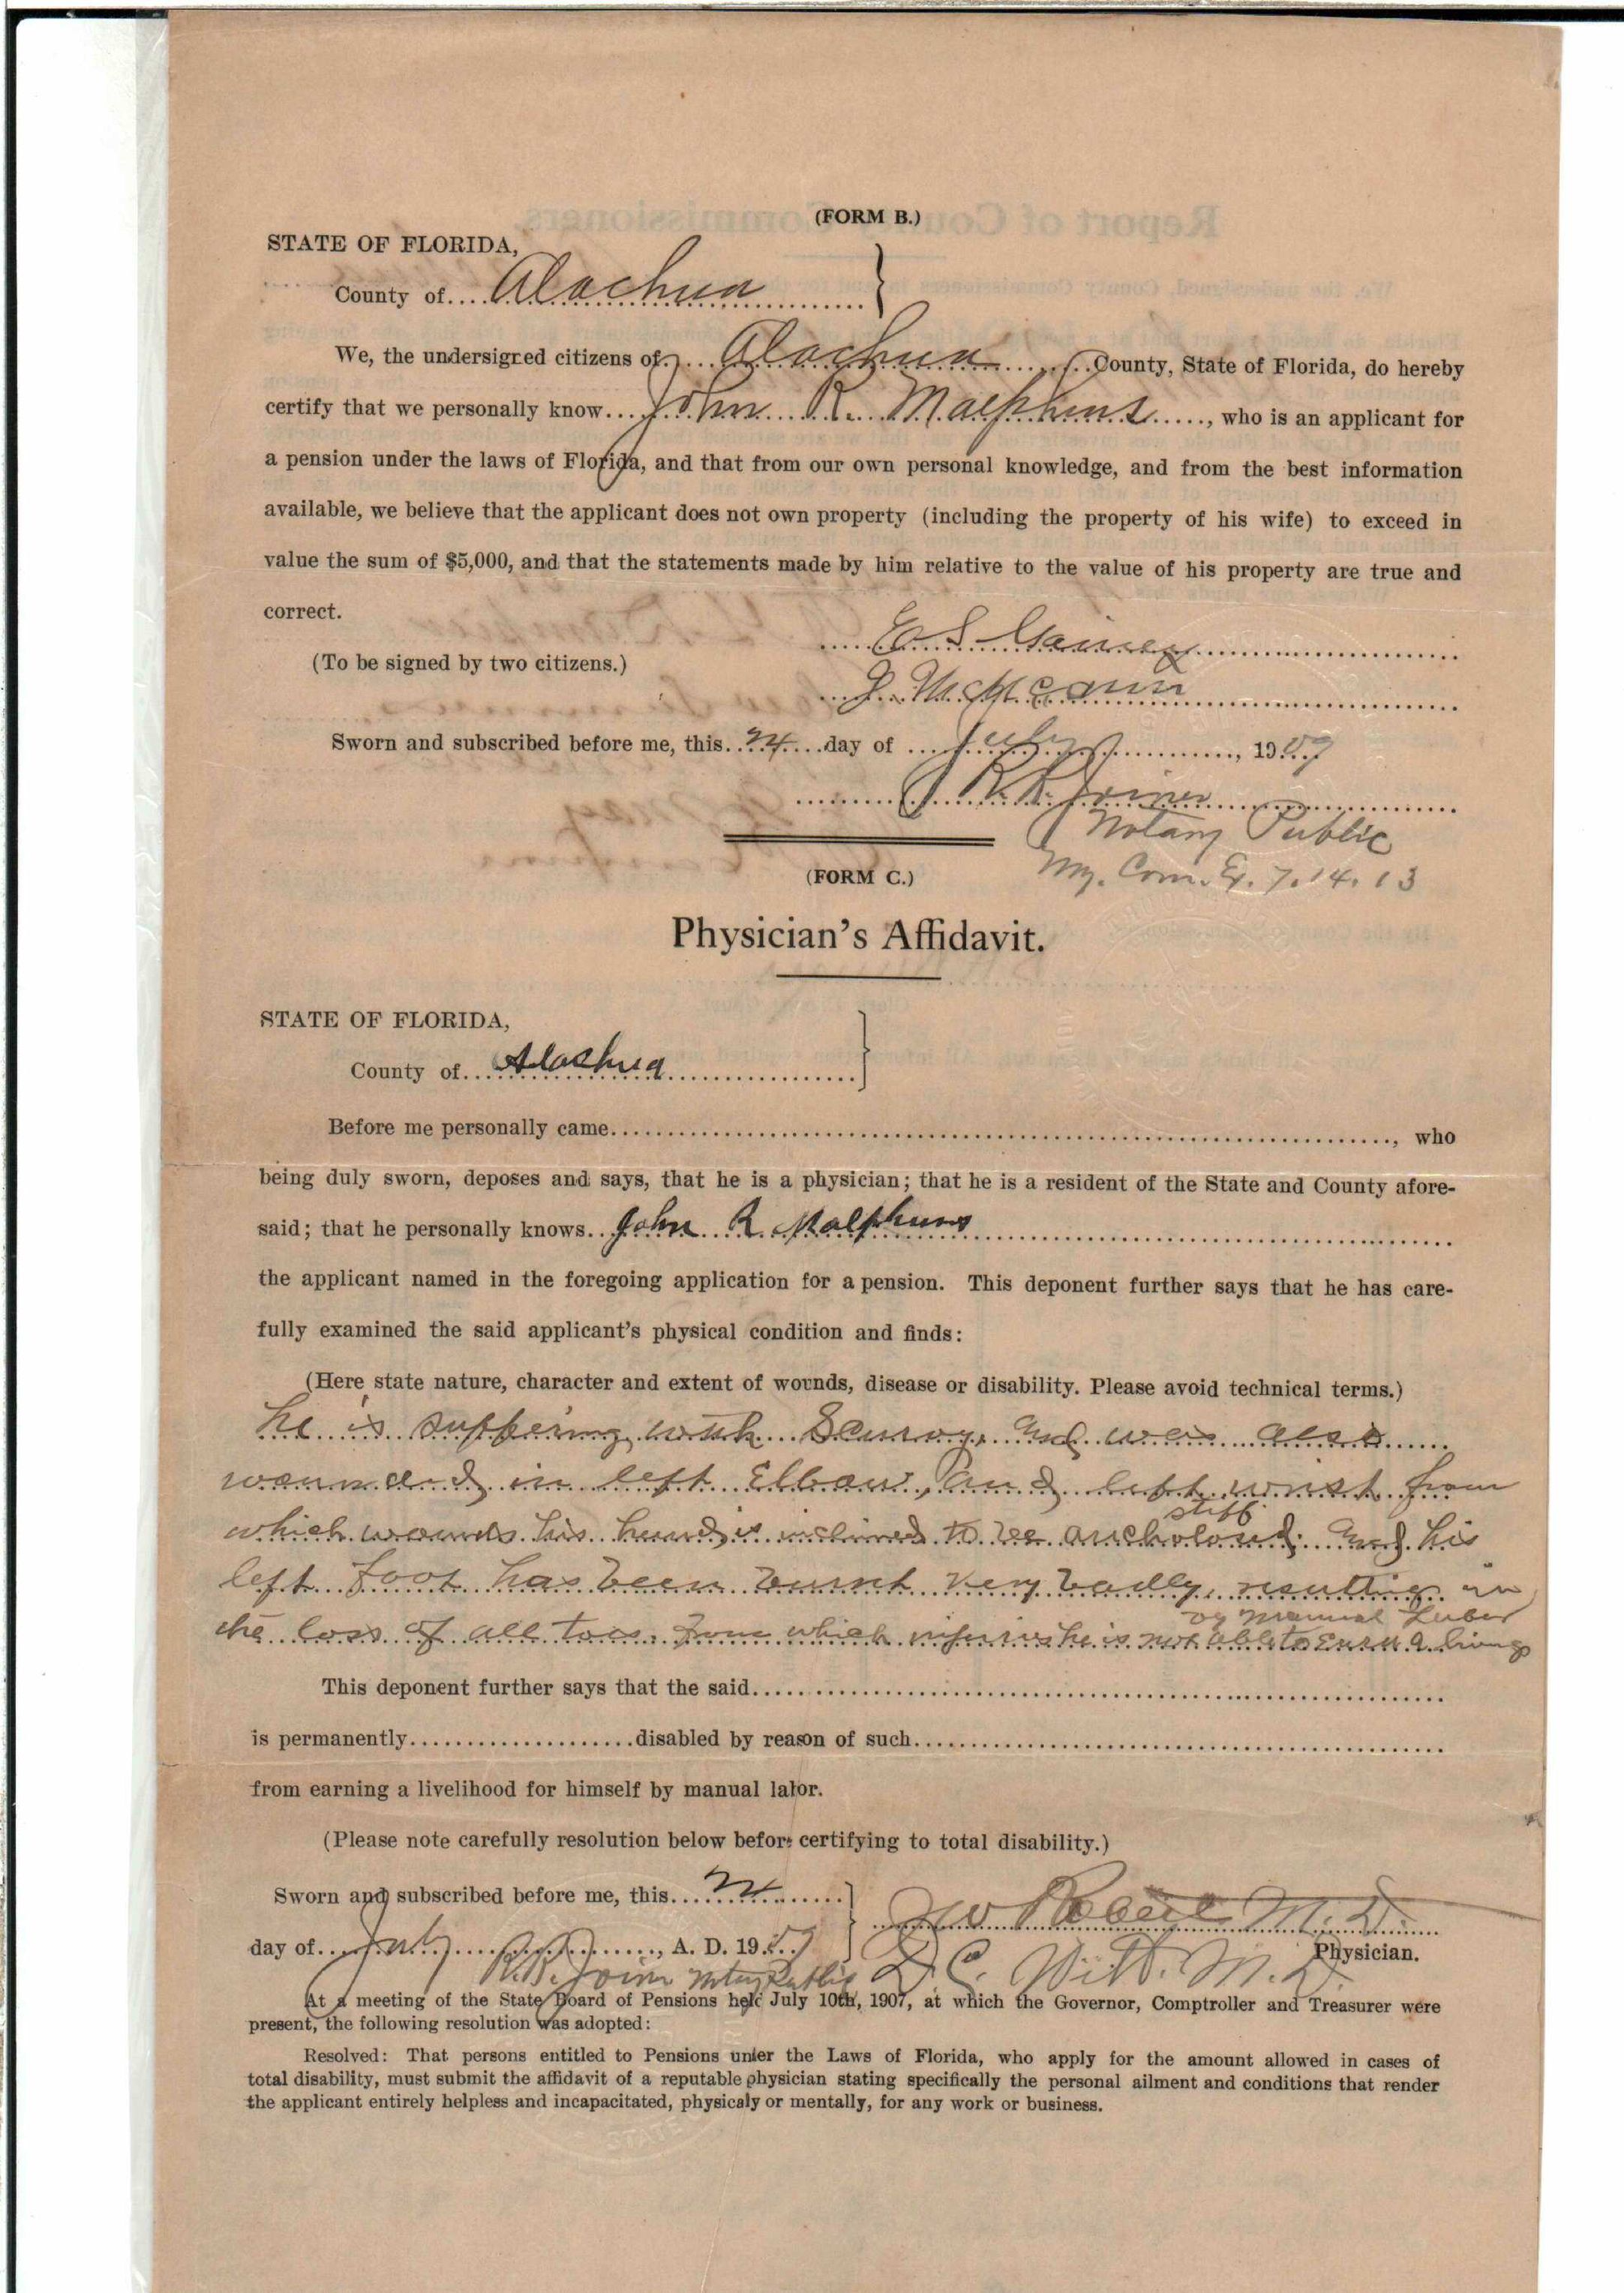 (FORM B.)
STATE OF FLORIDA,
County of....Alachua
We, the undersigned citizens of....Alachua....County, State of Florida, do hereby
certify that we personally know...John R. Malphurs....., who is an applicant for
a pension under the laws of Florida, and that from our own personal knowledge, and from the best information
available, we believe that the applicant does not own property (including the property of his wife) to exceed in
value the sum of $5,000, and that the statements made by him relative to the value of his property are true and
correct.
(To be signed by two citizens.)
Sworn and subscribed before me, this........day of ...July..., 1909
R. R. Joiner
Notary Public
My. Com. Ex. 7.14.13
(FORM C.)
Physician's Affidavit.
STATE OF FLORIDA,
County of....Alachua
Before me personally came........, who
being duly sworn, deposes and says, that he is a physician; that he is a resident of the State and County afore-
said; that he personally knows..John R Malphurs
the applicant named in the foregoing application for a pension. This deponent further says that he has care-
fully examined the said applicant's physical condition and finds:
(Here state nature, character and extent of wounds, disease or disability. Please avoid technical terms.)
he is suffering with Scurvy, and was also
wounded in left Elbow, and left wrist from
stiff
which wounds his hand is inclined to be ancholosed. and his
left foot has been burnt very badly, resulting in
by manual Labor
the loss of all toes. From which injuries he is not able to Earn a living
This deponent further says that the said........
is permanently........disabled by reason of such........
from earning a livelihood for himself by manual labor.
(Please note carefully resolution below before certifying to total disability.)
Sworn and subscribed before me, this........
day of....July...., A. D. 1909
M. D.
Physician.
R. R. Joiner Notary Public
D. C. Witt. M. D.
At a meeting of the State Board of Pensions held July 10th, 1907, at which the Governor, Comptroller and Treasurer were
present, the following resolution was adopted:
Resolved: That persons entitled to Pensions under the Laws of Florida, who apply for the amount allowed in cases of
total disability, must submit the affidavit of a reputable physician stating specifically the personal ailment and conditions that render
the applicant entirely helpless and incapacitated, physicaly or mentally, for any work or business.